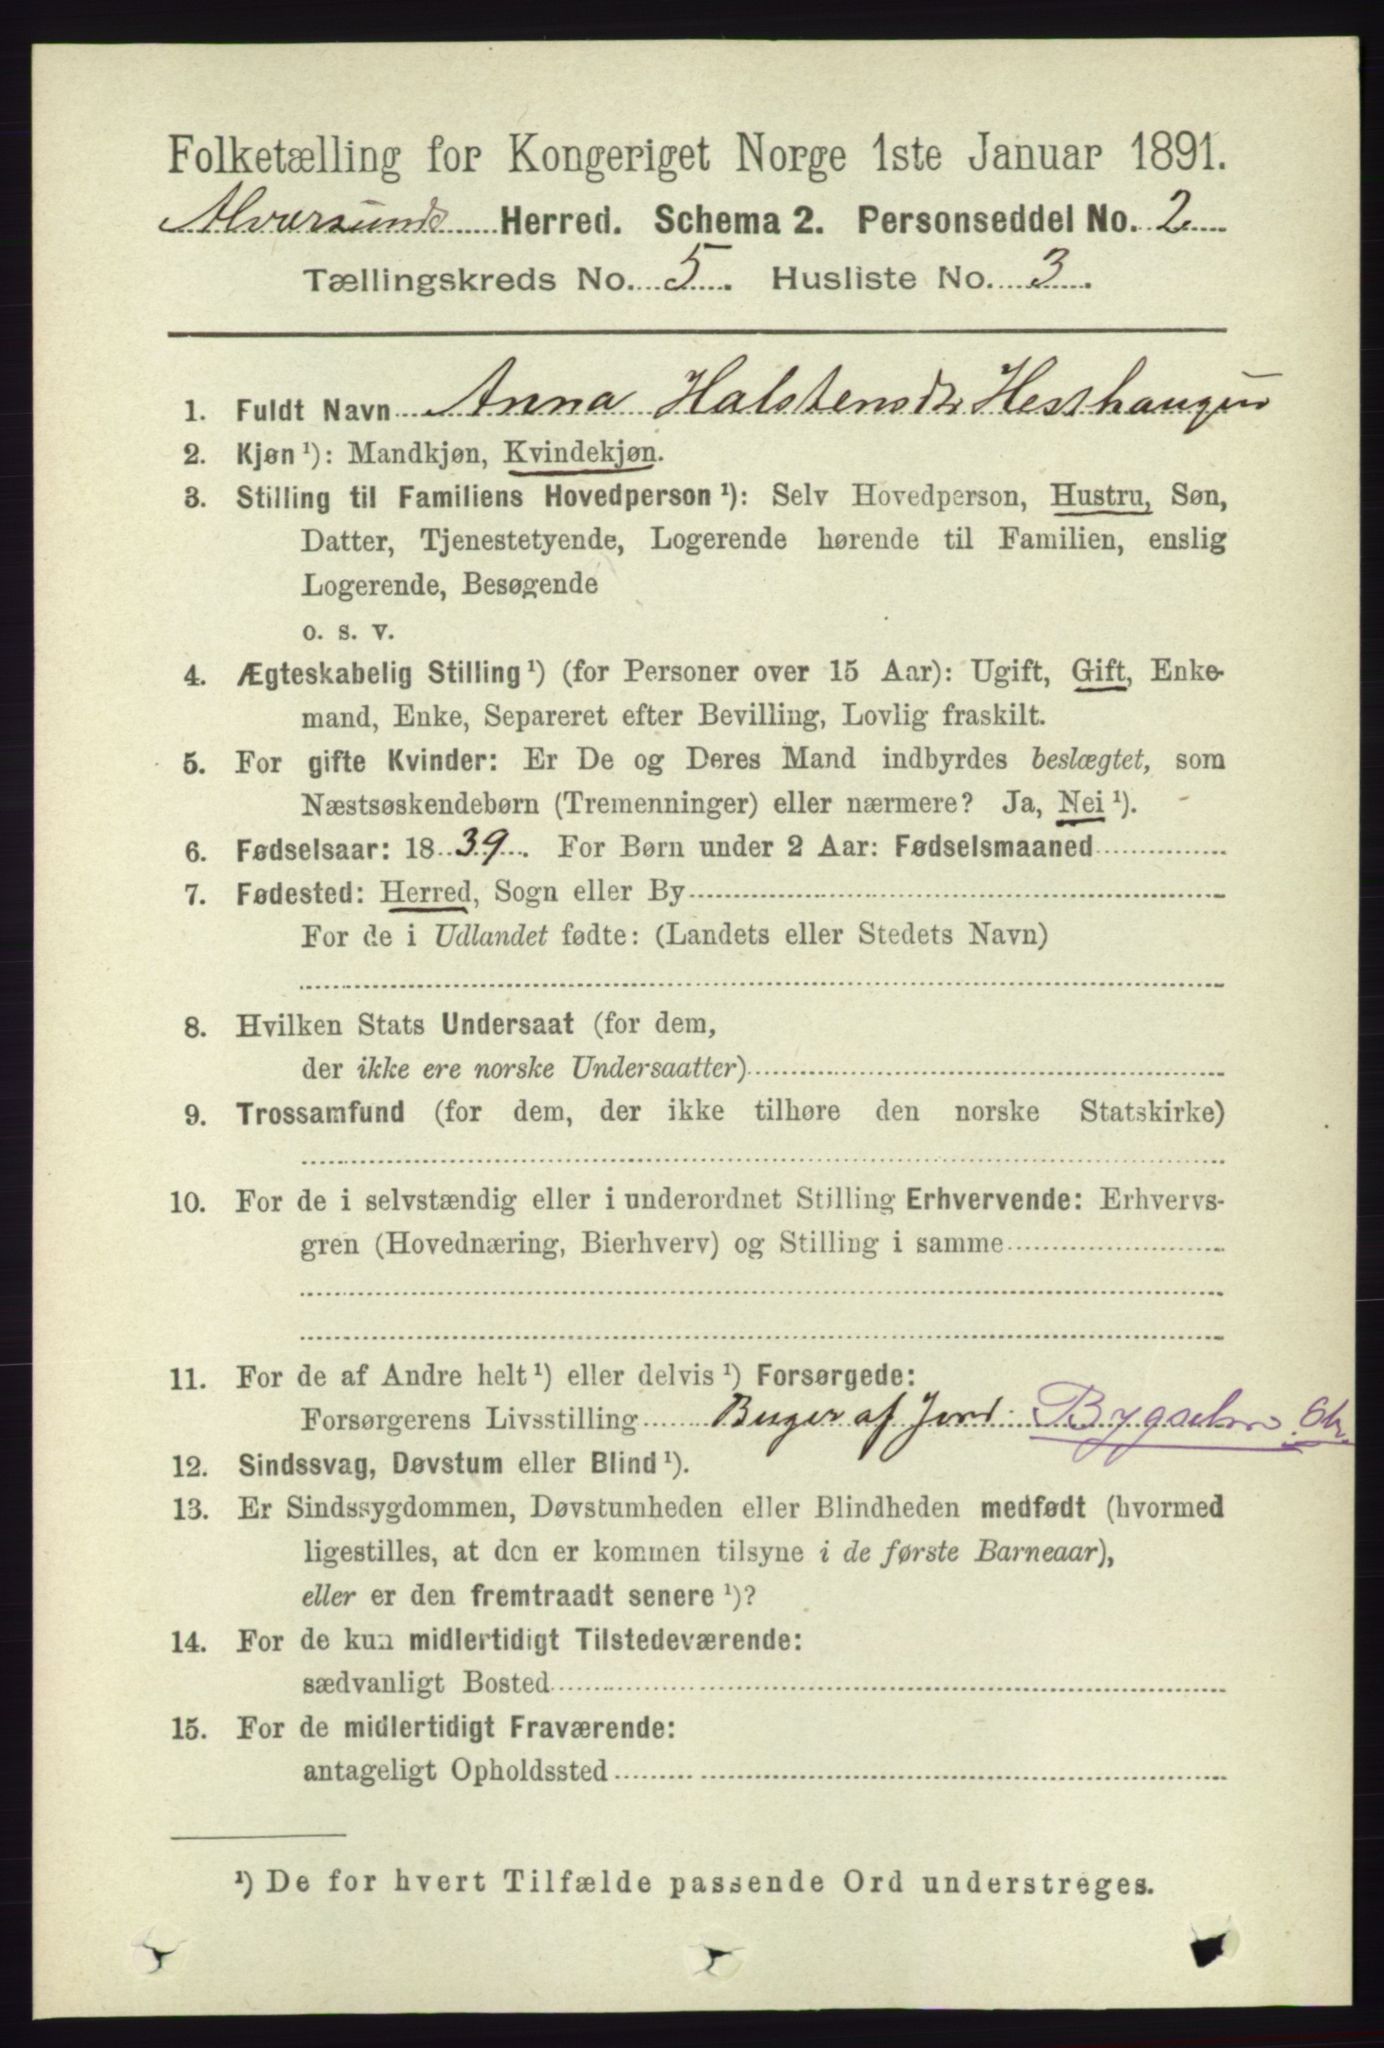 Folketælling for Kongeriget Norge 1ste Januar 1891.
Alversunds Herred. Schema 2. Personseddel No. 2
Tællingskreds No. 5. Husliste No. 3.
1. Fuldt Navn Anna Halstensdtr Hesthaugen
2. Kjøn ¹): Mandkjøn, Kvindekjøn.
3. Stilling til Familiens Hovedperson ¹): Selv Hovedperson, Hustru, Søn,
Datter, Tjenestetyende, Logerende hørende til Familien, enslig
Logerende, Besøgende
o. s. v.
4. Ægteskabelig Stilling ¹) (for Personer over 15 Aar): Ugift, Gift, Enke-
mand, Enke, Separeret efter Bevilling, Lovlig fraskilt.
5. For gifte Kvinder: Er De og Deres Mand indbyrdes beslægtet, som
Næstsøskendebørn (Tremenninger) eller nærmere? Ja, Nei ¹).
6. Fødselsaar: 1839. For Børn under 2 Aar: Fødselsmaaned
7. Fødested: Herred, Sogn eller By
For de i Udlandet fødte: (Landets eller Stedets Navn)
8. Hvilken Stats Undersaat (for dem,
der ikke ere norske Undersaatter)
9. Trossamfund (for dem, der ikke tilhøre den norske Statskirke)
10. For de i selvstændig eller i underordnet Stilling Erhvervende: Erhvervs-
gren (Hovednæring, Bierhverv) og Stilling i samme
11. For de af Andre helt ¹) eller delvis ¹) Forsørgede:
Forsørgerens Livsstilling Buger af Jord
12. Sindssvag, Døvstum eller Blind ¹).
13. Er Sindssygdommen, Døvstumheden eller Blindheden medfødt (hvormed
ligestilles, at den er kommen tilsyne i de første Barneaar),
eller er den fremtraadt senere ¹)?
14. For de kun midlertidigt Tilstedeværende:
sædvanligt Bosted
15. For de midlertidigt Fraværende:
antageligt Opholdssted
¹) De for hvert Tilfælde passende Ord understreges.